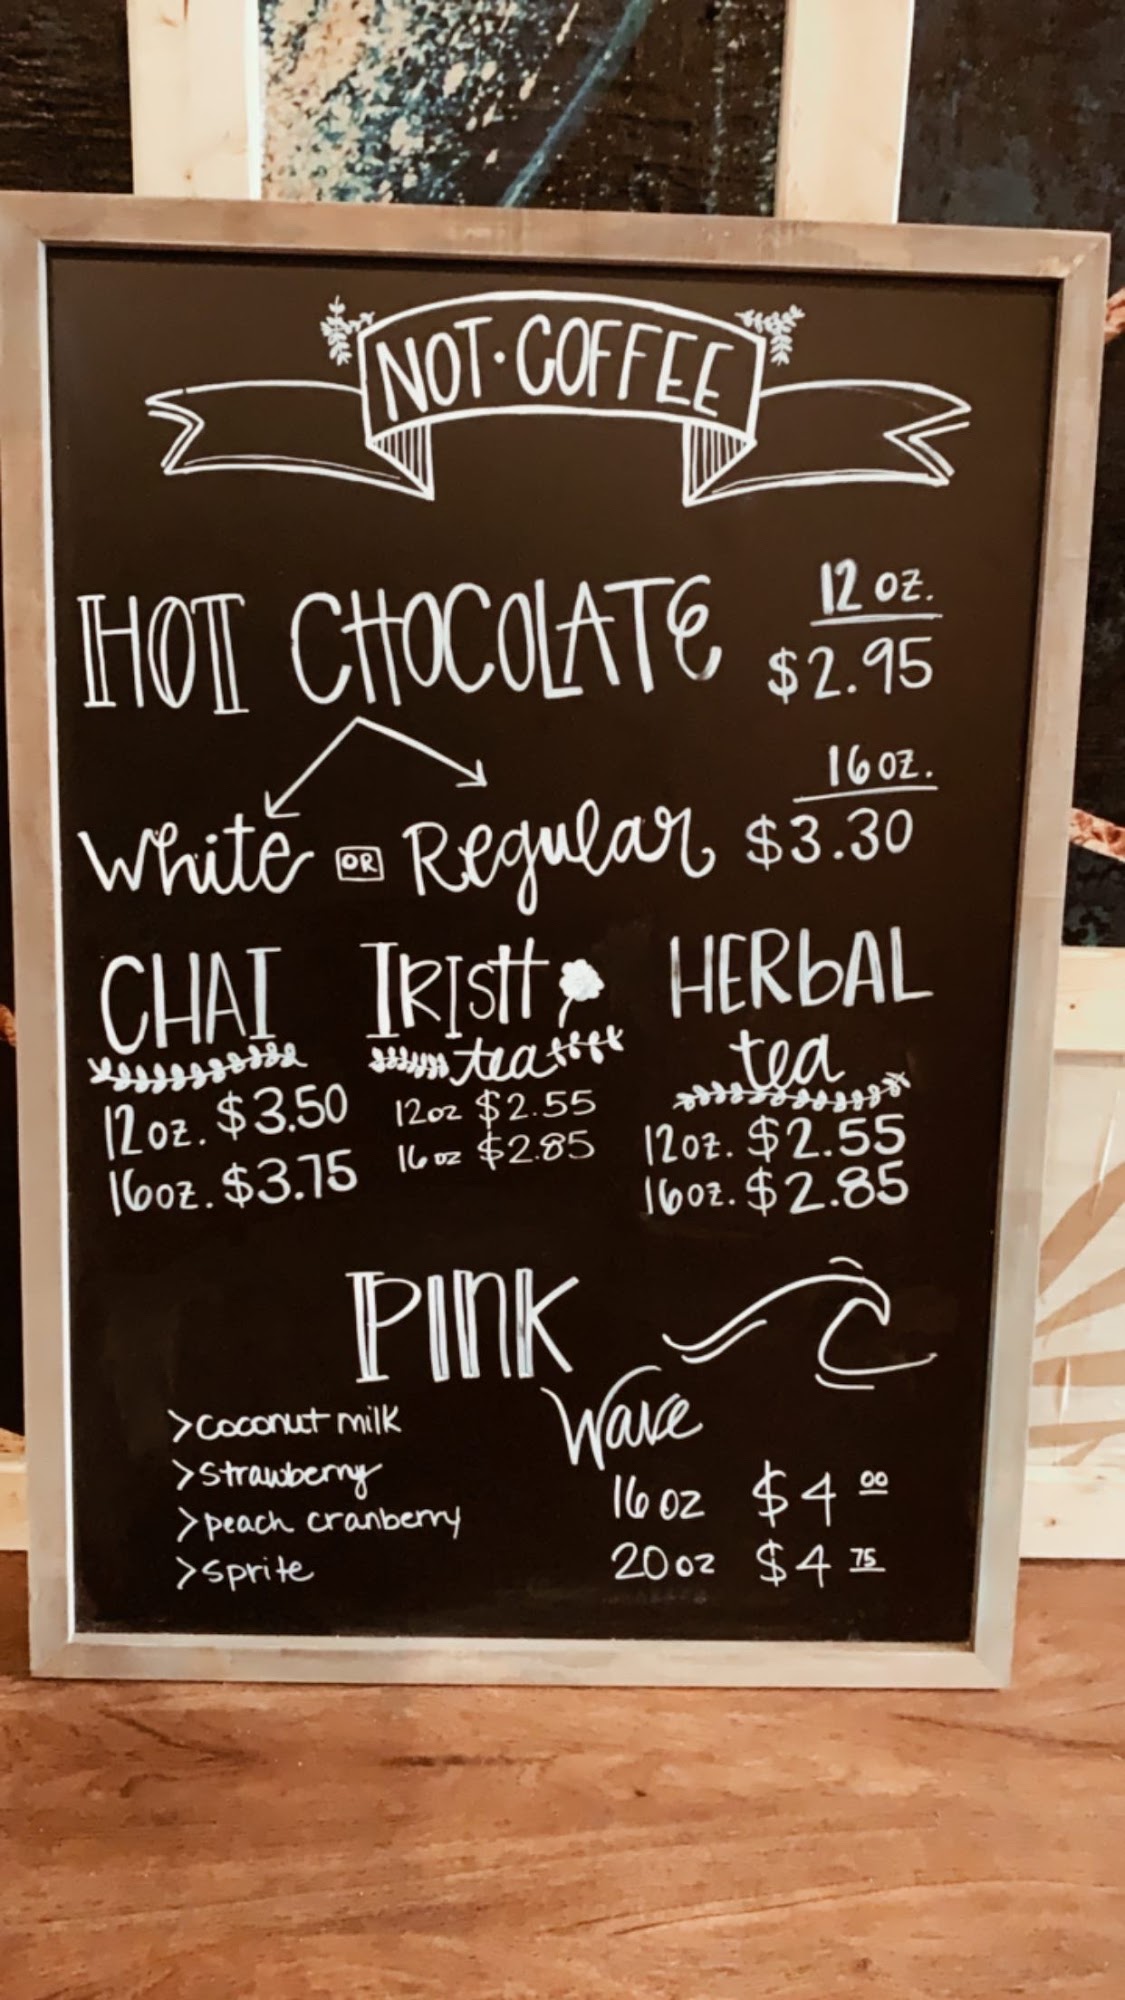 NOT·COFFEE
HOT CHOCOLATE
12 oz.
$2.95
White OR Regular
16 oz.
$3.30
CHAI
12 oz. $3.50
16 oz. $3.75
IRISH
tea
12 oz $2.55
16 oz $2.85
HERbAL
tea
12 oz. $2.55
16 oz. $2.85
PINK
Wave
>coconut milk
>strawberry
>peach cranberry
>sprite
16 oz $4 00
20 oz $4 75